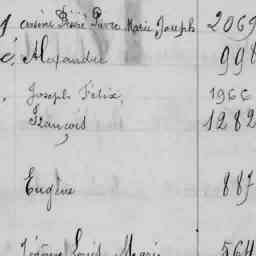 Désiré Pierre Marie Joseph 2069
Alexandre 998
Joseph Félix, 1966
François 1282
Eugène 887
Louis Marie 564